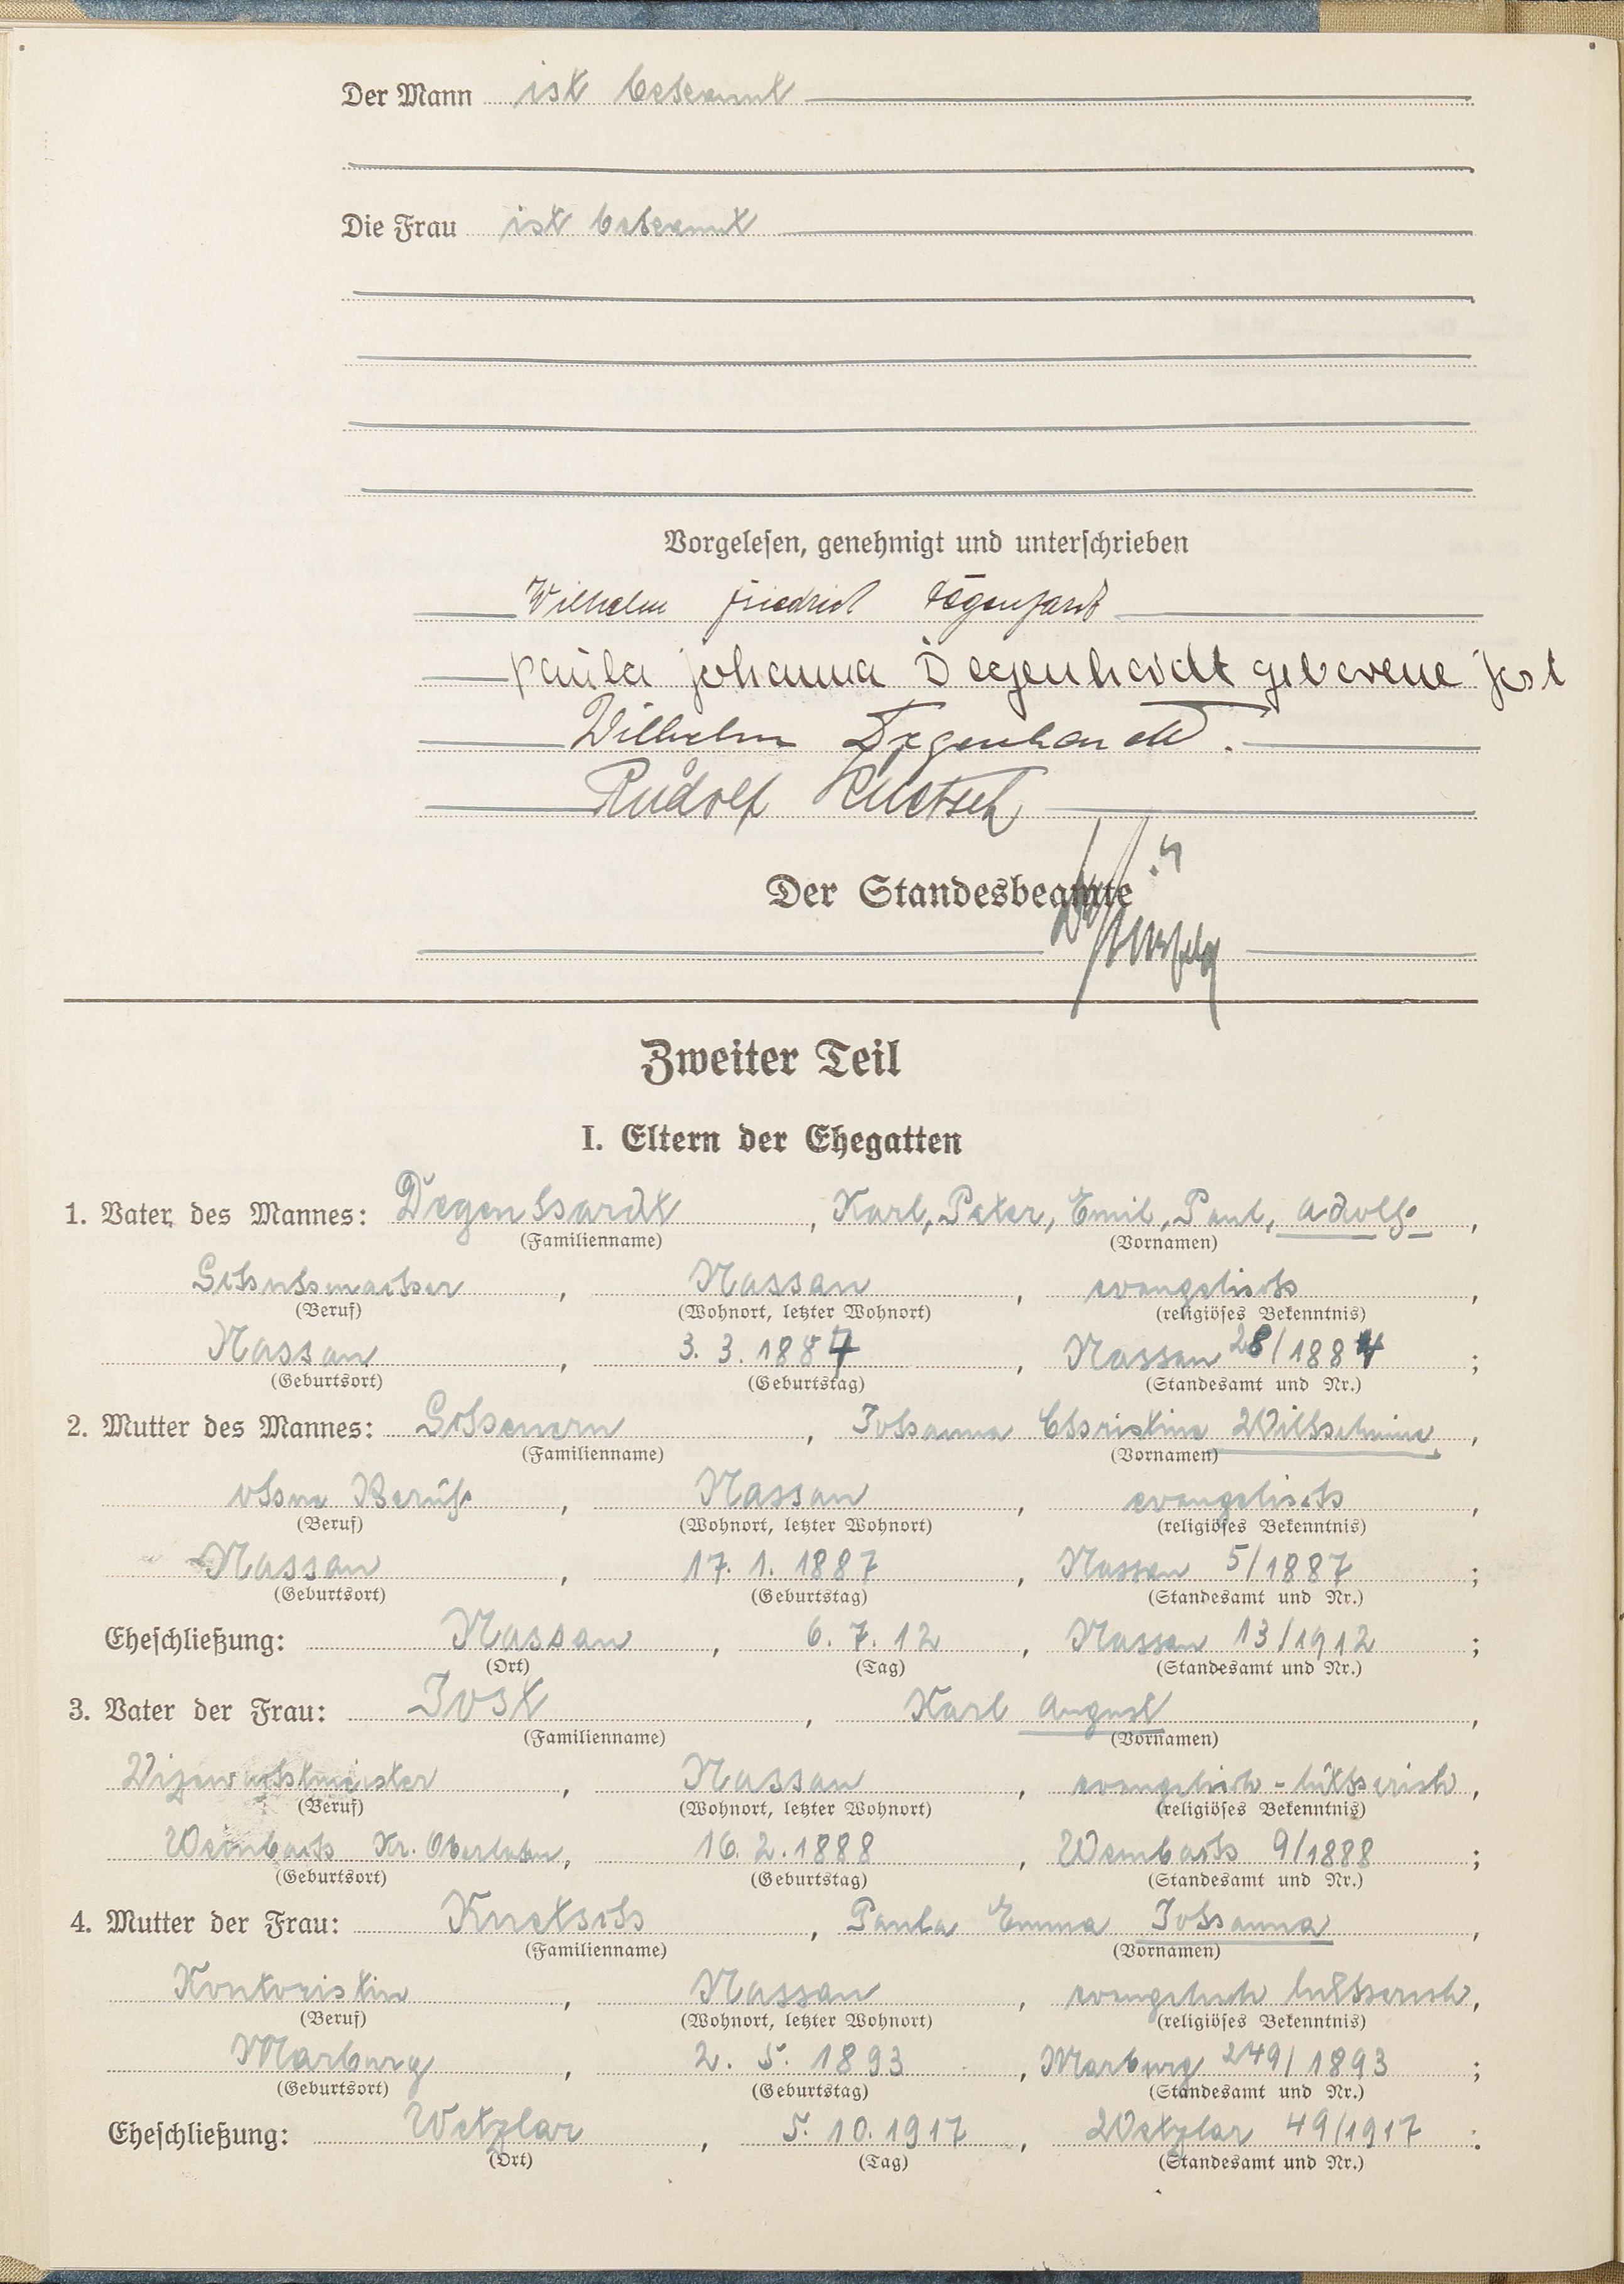 Der Mann ist bekannt
Die Frau ist bekannt
Vorgelesen, genehmigt und unterschrieben
Wilhelm Friedrich Degenhardt
Paula Johanna Degenhardt geborene Jost
Wilhelm Degenhardt.
Rudolf Knetsch
Der Standesbeamte
Zweiter Teil
I. Eltern der Ehegatten
1. Vater des Mannes: Degenhardt, Karl, Peter, Emil, Paul, Adolf,
(Familienname) (Vornamen)
Schuhmacher, Nassau, evangelisch,
(Beruf) (Wohnort, letzter Wohnort) (religiöses Bekenntnis)
Nassau, 3. 3. 1884, Nassau 28/1884;
(Geburtsort) (Geburtstag) (Standesamt und Nr.)
2. Mutter des Mannes: , Johanna Christine Wilhelmine,
(Familienname) (Vornamen)
ohne Beruf, Nassau, evangelisch,
(Beruf) (Wohnort, letzter Wohnort) (religiöses Bekenntnis)
Nassau, 17. 1. 1887, Nassau 5/1887;
(Geburtsort) (Geburtstag) (Standesamt und Nr.)
Eheschließung: Nassau, 6. 7. 12, Nassau 13/1912;
(Ort) (Tag) (Standesamt und Nr.)
3. Vater der Frau: Jost, Karl August,
(Familienname) (Vornamen)
Vizewachtmeister, Nassau, evangelisch-lutherisch,
(Beruf) (Wohnort, letzter Wohnort) (religiöses Bekenntnis)
Weinbach Kr. Oberlahn, 16. 2. 1888, Weinbach 9/1888;
(Geburtsort) (Geburtstag) (Standesamt und Nr.)
4. Mutter der Frau: Knetsch, Paula Emma Johanna,
(Familienname) (Vornamen)
Kontoristin, Nassau, evangelisch lutherisch,
(Beruf) (Wohnort, letzter Wohnort) (religiöses Bekenntnis)
Marburg, 2. 5. 1893, Marburg 249/1893;
(Geburtsort) (Geburtstag) (Standesamt und Nr.)
Eheschließung: Wetzlar, 5. 10. 1917, Wetzlar 49/1917.
(Ort) (Tag) (Standesamt und Nr.)